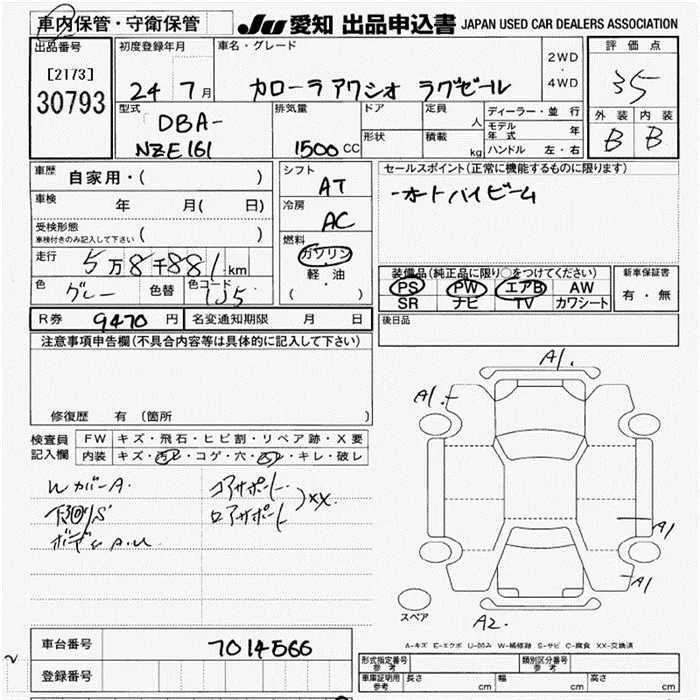 車内保管・守衛保管
JU 愛知 出品申込書 JAPAN USED CAR DEALERS ASSOCIATION
出品番号
[2173]
30793
初度登録年月
24 7月
車名・グレード
カローラ アクシオ ラグゼール
2WD
・
4WD
評価点
35
外装 内装
B B
型式
DBA-
NZE161
排気量
1500 cc
ドア
形状
定員
人
積載
kg
ディーラー・並行
モデル年式 年
ハンドル 左・右
車歴
自家用・( )
車検 年 月( 日)
受検形態
車検付きのみ記入して下さい ( )
走行
5万8千881km
色
グレー
色替
色コード
1J5
シフト
AT
冷房
AC
燃料
ガソリン
軽・油
( )
セールスポイント(正常に機能するものに限ります)
装備品(純正品に限り○をつけてください)
PS PW エアB AW
SR ナビ TV カワシート
新車保証書
有・無
R券 9470 円 名変通知期限 月 日
後日品
注意事項申告欄(不具合内容等は具体的に記入して下さい)
修復歴 有 (箇所 )
検査員
記入欄
FW キズ・飛石・ヒビ割・リペア跡・X要
内装 キズ・汚レ・コゲ・穴・凹ミ・キレ・破レ
WカバーA.
下回リS
コアサポート
ロアサポート
XX.
A1.
A1.
A1
A1
A2.
スペア
A-キズ E-エクボ U-凹み W-補修跡 S-サビ C-腐食 XX-交換済
車台番号 7014566
登録番号
形式指定番号
参考
類別区分番号
参考
車庫証明用
参考
長さ cm 幅 cm 高さ cm